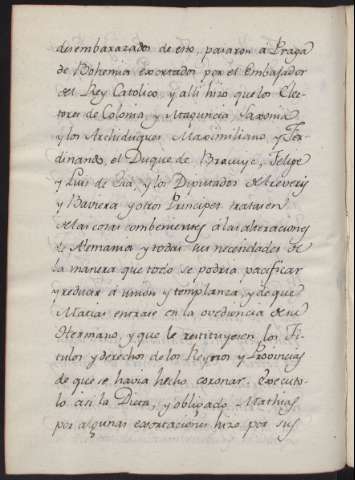 desembarazados de esto, pasaron à Praga
de Bohemia exortados por el Embajador
del Rey Catolico, y alli hizo que los Elec-
tores de Colonia, y Maguncia, Saxonia
y los Archiduques Maximiliano, y Fer-
dinando, el Duque de Felipe
y Luis de y los Diputados de Treveris
y Baviera y otros Principes tratasen
de las cosas combenientes à las alteraciones
de Alemania y todas sus necesidades de
la manera que todo se podria pacificar
y reducir à union y templanza, y de que
Matias entrase en la ovediencia de su
Hermano, y que le restituyesen los Ti-
tulos y derechos de los Reynos y Provincias
de que se havia hecho coronar. Executo-
lo asi la Dieta, y obligado Mathias
por algunas exortaciones hizo por sus